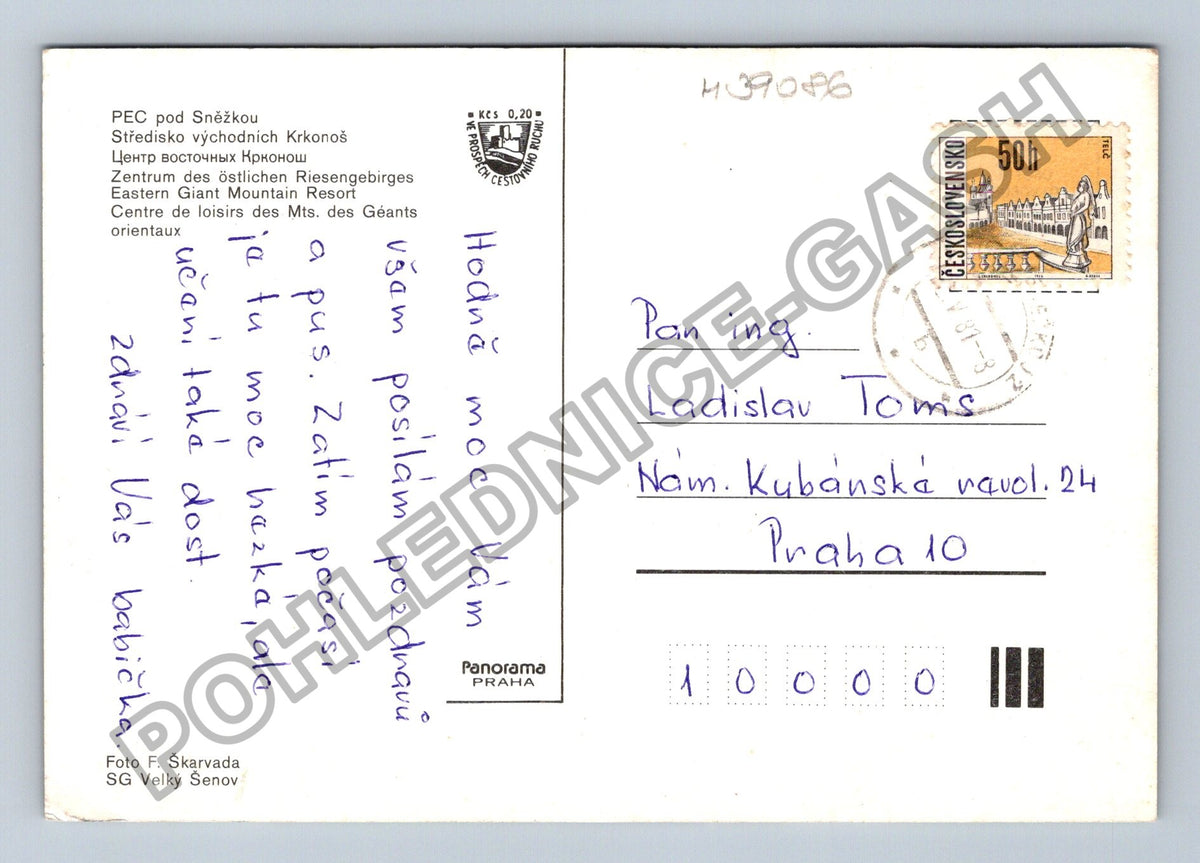 PEC pod Sněžkou
Středisko východních Krkonoš
Центр восточных Крконош
Zentrum des östlichen Riesengebirges
Eastern Giant Mountain Resort
Centre de loisirs des Mts. des Géants
orientaux
Kčs 0,20
VE PROSPĚCH CESTOVNÍHO RUCHU
Hodně moc Vám
všam posílám pozdravů
a pus. Zatím počasí
je tu moc hazké, ale
učení také dost.
zdraví Vás babička.
Panorama
PRAHA
Foto F. Škarvada
SG Velký Šenov
H39086
ČESKOSLOVENSKO
50h
TELČ
Pan ing.
Ladislav Toms
Nám. Kubánské revol. 24
Praha 10
1 0 0 0 0
POHLEDNICE-GASH